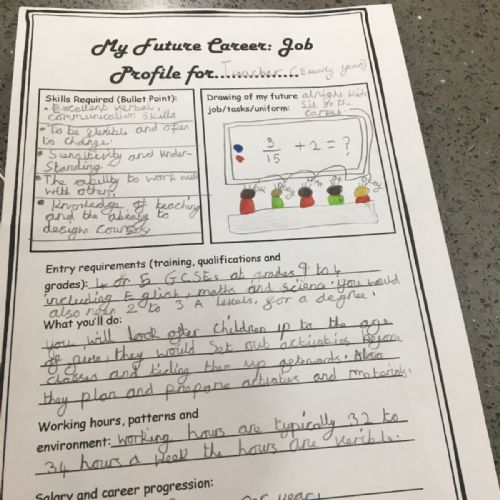 My Future Career: Job
Profile for................ Teacher (Early years)
Skills Required (Bullet Point):
• Excellent verbal communication skills
• To be flexible and open to change.
• Sensitivity and Under-
standing.
• The ability to work well
with others.
• Knowledge of teaching
and the ability to
design courses
Drawing of my future
job/tasks/uniform:
alright kids
sit on the
carpet.
3/15 + 2 = ?
Entry requirements (training, qualifications and
grades): 4 or 5 GCSEs at grades 9 to 4
including English, maths and science. You would
also need 2 to 3 A levels, for a degree.
What you'll do:
you will look after children up to the age
of nine, they would set out activities before
classes and tiding them up afterwards. Also
they plan and prepare activities and materials.
Working hours, patterns and
environment: Working hours are typically 32 to
34 hours a week the hours are
Salary and career progression:
per year